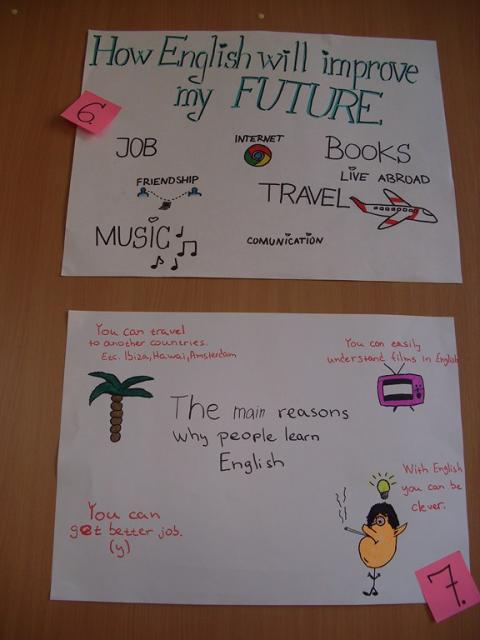 How English will improve
my FUTURE
6.
JOB
INTERNET
BOOKS
FRIENDSHIP
LIVE ABROAD
TRAVEL
MUSIC
COMUNICATION
You can travel
to another countries.
Etc. Ibiza, Hawai, Amsterdam
You can easily
understand films in English
The main reasons
why people learn
English
With English
you can be
clever.
You can
get better job.
(y)
7.